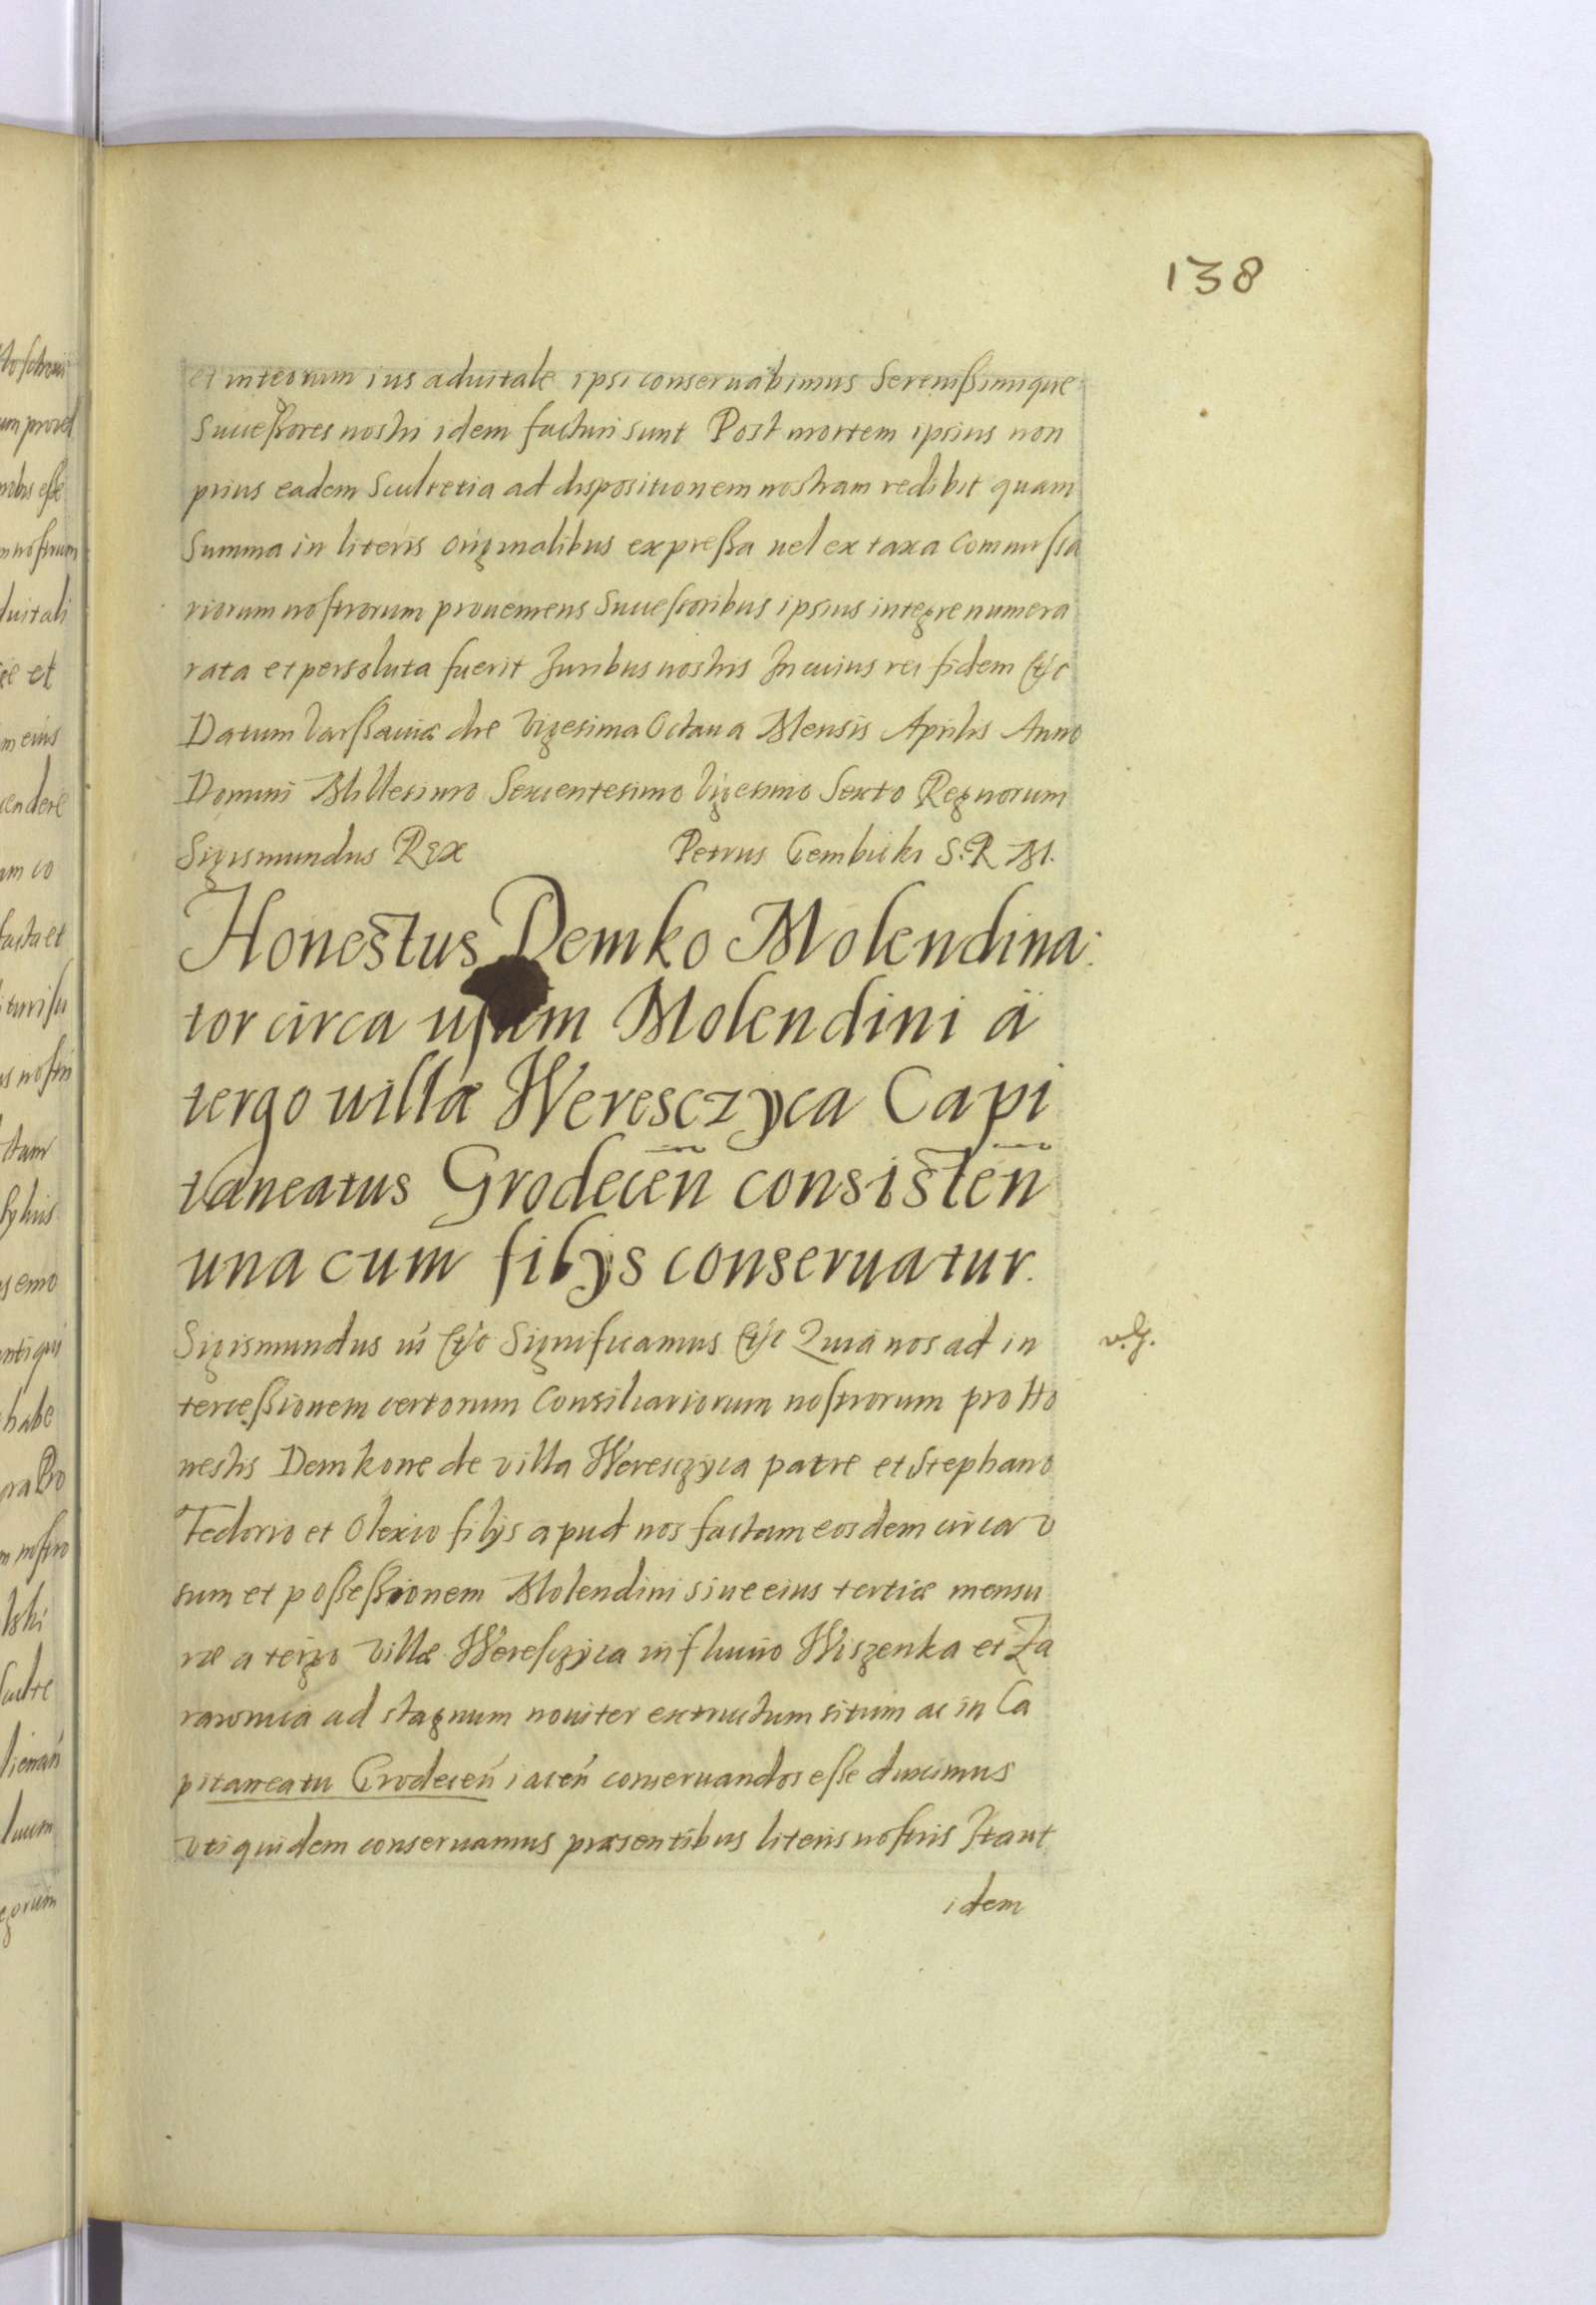 138
et in teorum ius aduitale ipsi conseruabimus Serenißimique
Succeßores nostri idem facturi sunt Post mortem ipsius non
prius eadem Scultetia ad dispositionem nostram redibit quam
Summa in literis originalibus expreßa uel ex taxa Commissa
riorum nostrorum proueniens Successoribus ipsius integre numera
rata et persoluta fuerit Juribus nostris In cuius rei fidem etc
Datum Varßauiæ die Vigesima Octaua Mensis Aprilis Anno
Domini Millesimo Sexcentesimo Vigesimo Sexto Regnorum
Sigismundus Rex Petrus Gembicki S. R. M.
Honestus Demko Molendina:
tor circa usum Molendini à
tergo uillæ Weresczyca Capi
taneatus Grodecen̄ consisten̄
una cum filijs conseruatur.
Sigismundus iii etc Significamus etc Quia nos ad in
terceßionem certorum Consiliariorum nostrorum pro Ho
nestis Demkone de villa Weresczyca patre et Stephano
Fedorio et Olexio filijs apud nos factam eosdem circa v
sum et poßeßionem Molendini siue eius tertiæ mensu
ræ a tergo Villæ Weresczyca in fluuio Wiszenka et Za
rawnica ad stagnum nouiter extructum situm ac in Ca
pitaneatu Grodecen̄ iacen̄ conseruandos eße duximus
vti quidem conseruamus præsentibus literis nostris Ita ut
idem